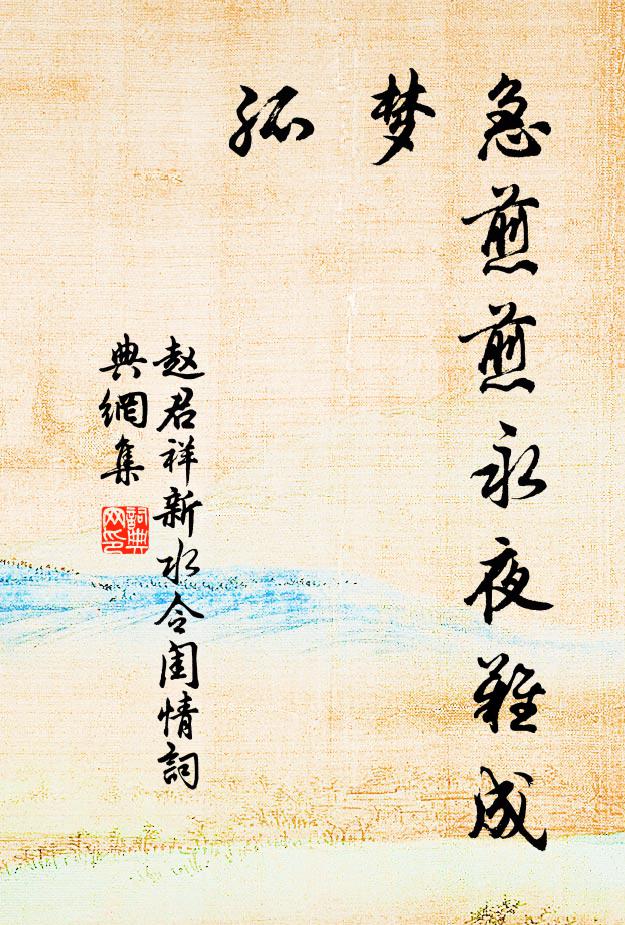 急煎煎永夜難成
梦
孤
赵君祥新水令闺情詞
典網集
詞典
网印